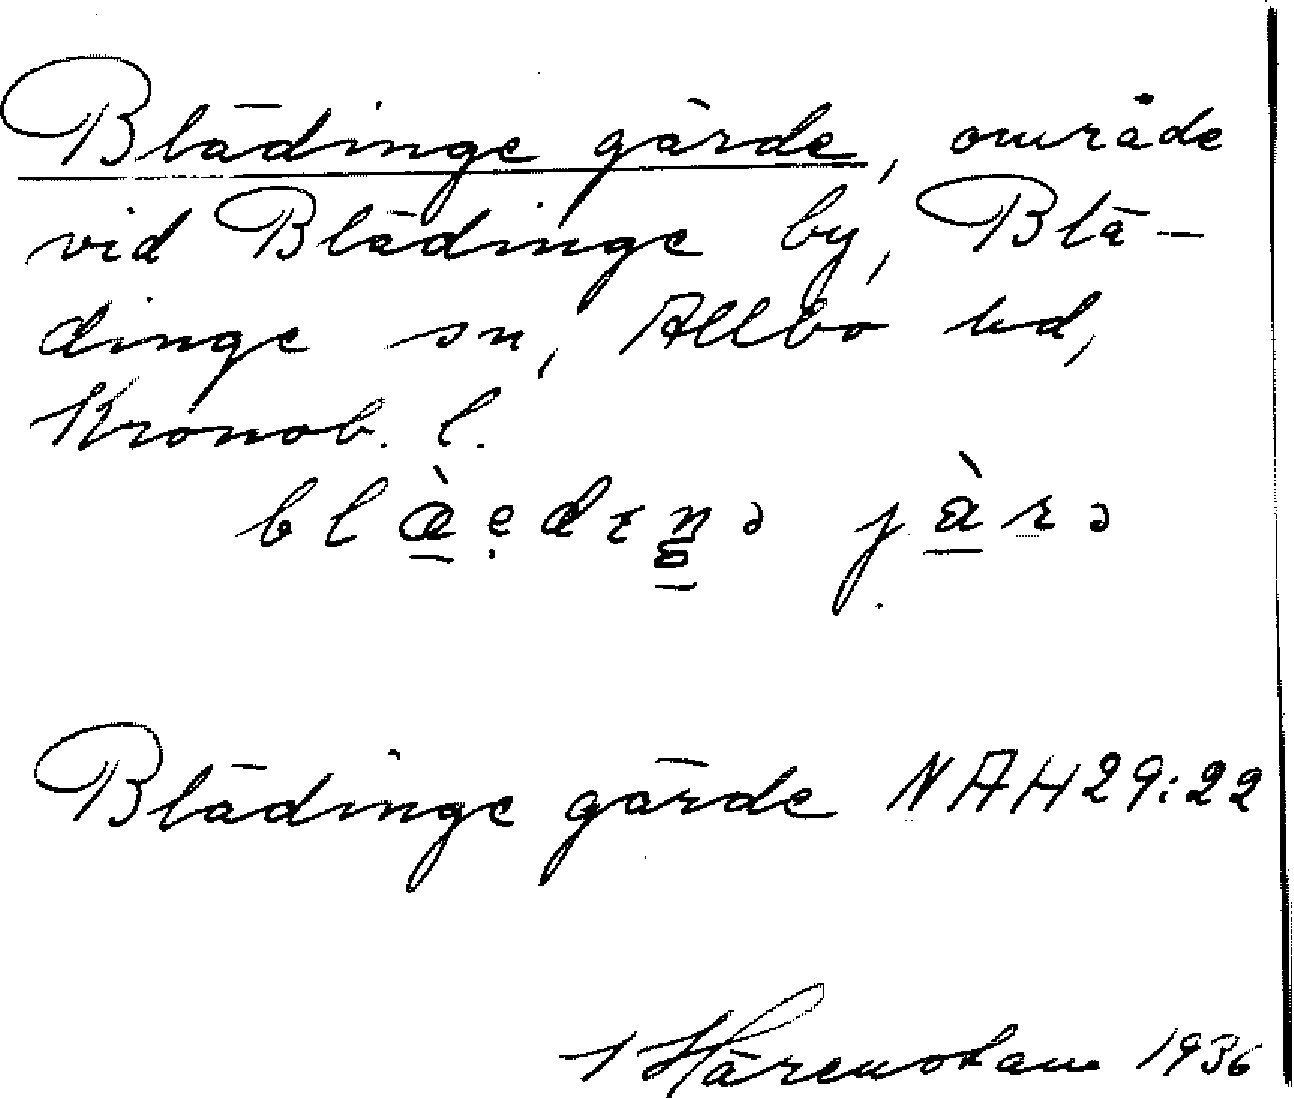 Blädinge gärde, område
vid Blädinge by, Blä-
dinge sn, Allbo hd,
Kronob. l.
blæ̀ẹdɪŋə jàrə
Blädinge gärde NAH29:22
1 Härenstam 1936